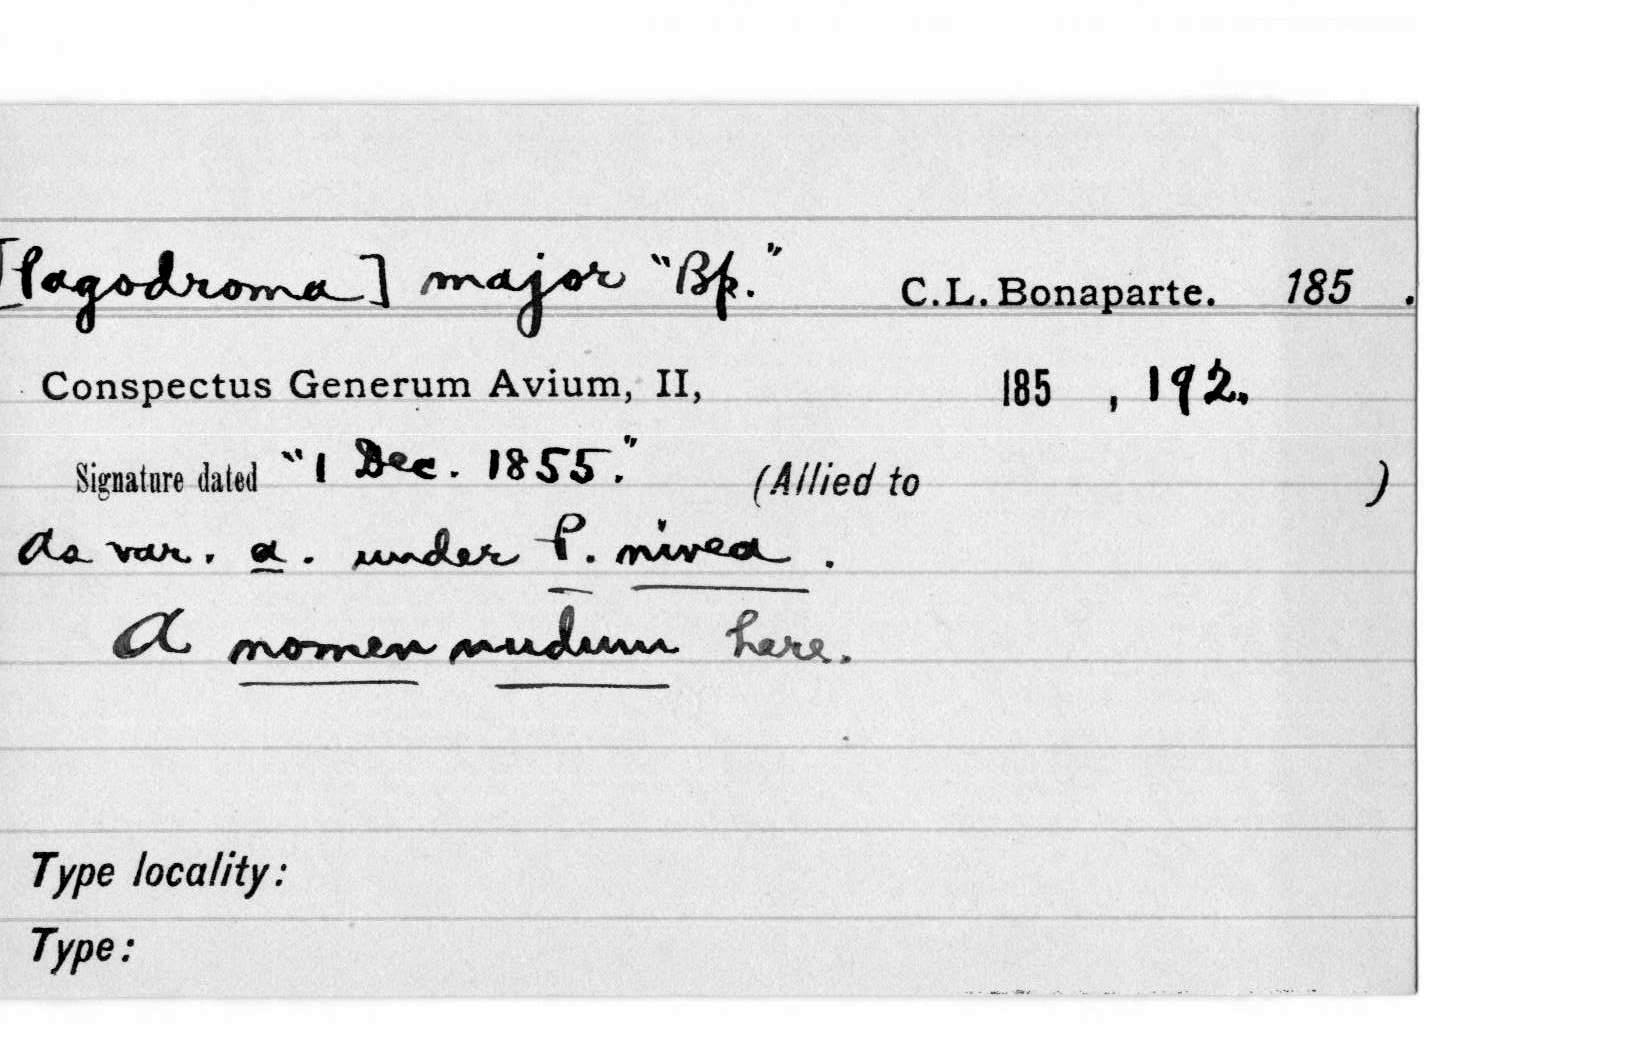 [Pagodroma] major "Bp." C.L. Bonaparte. 185 .
Conspectus Generum Avium, II, 185 , 192.
Signature dated "1 Dec. 1855." (Allied to )
As var. a. under P. nivea .
A nomen nudum here.
Type locality:
Type: